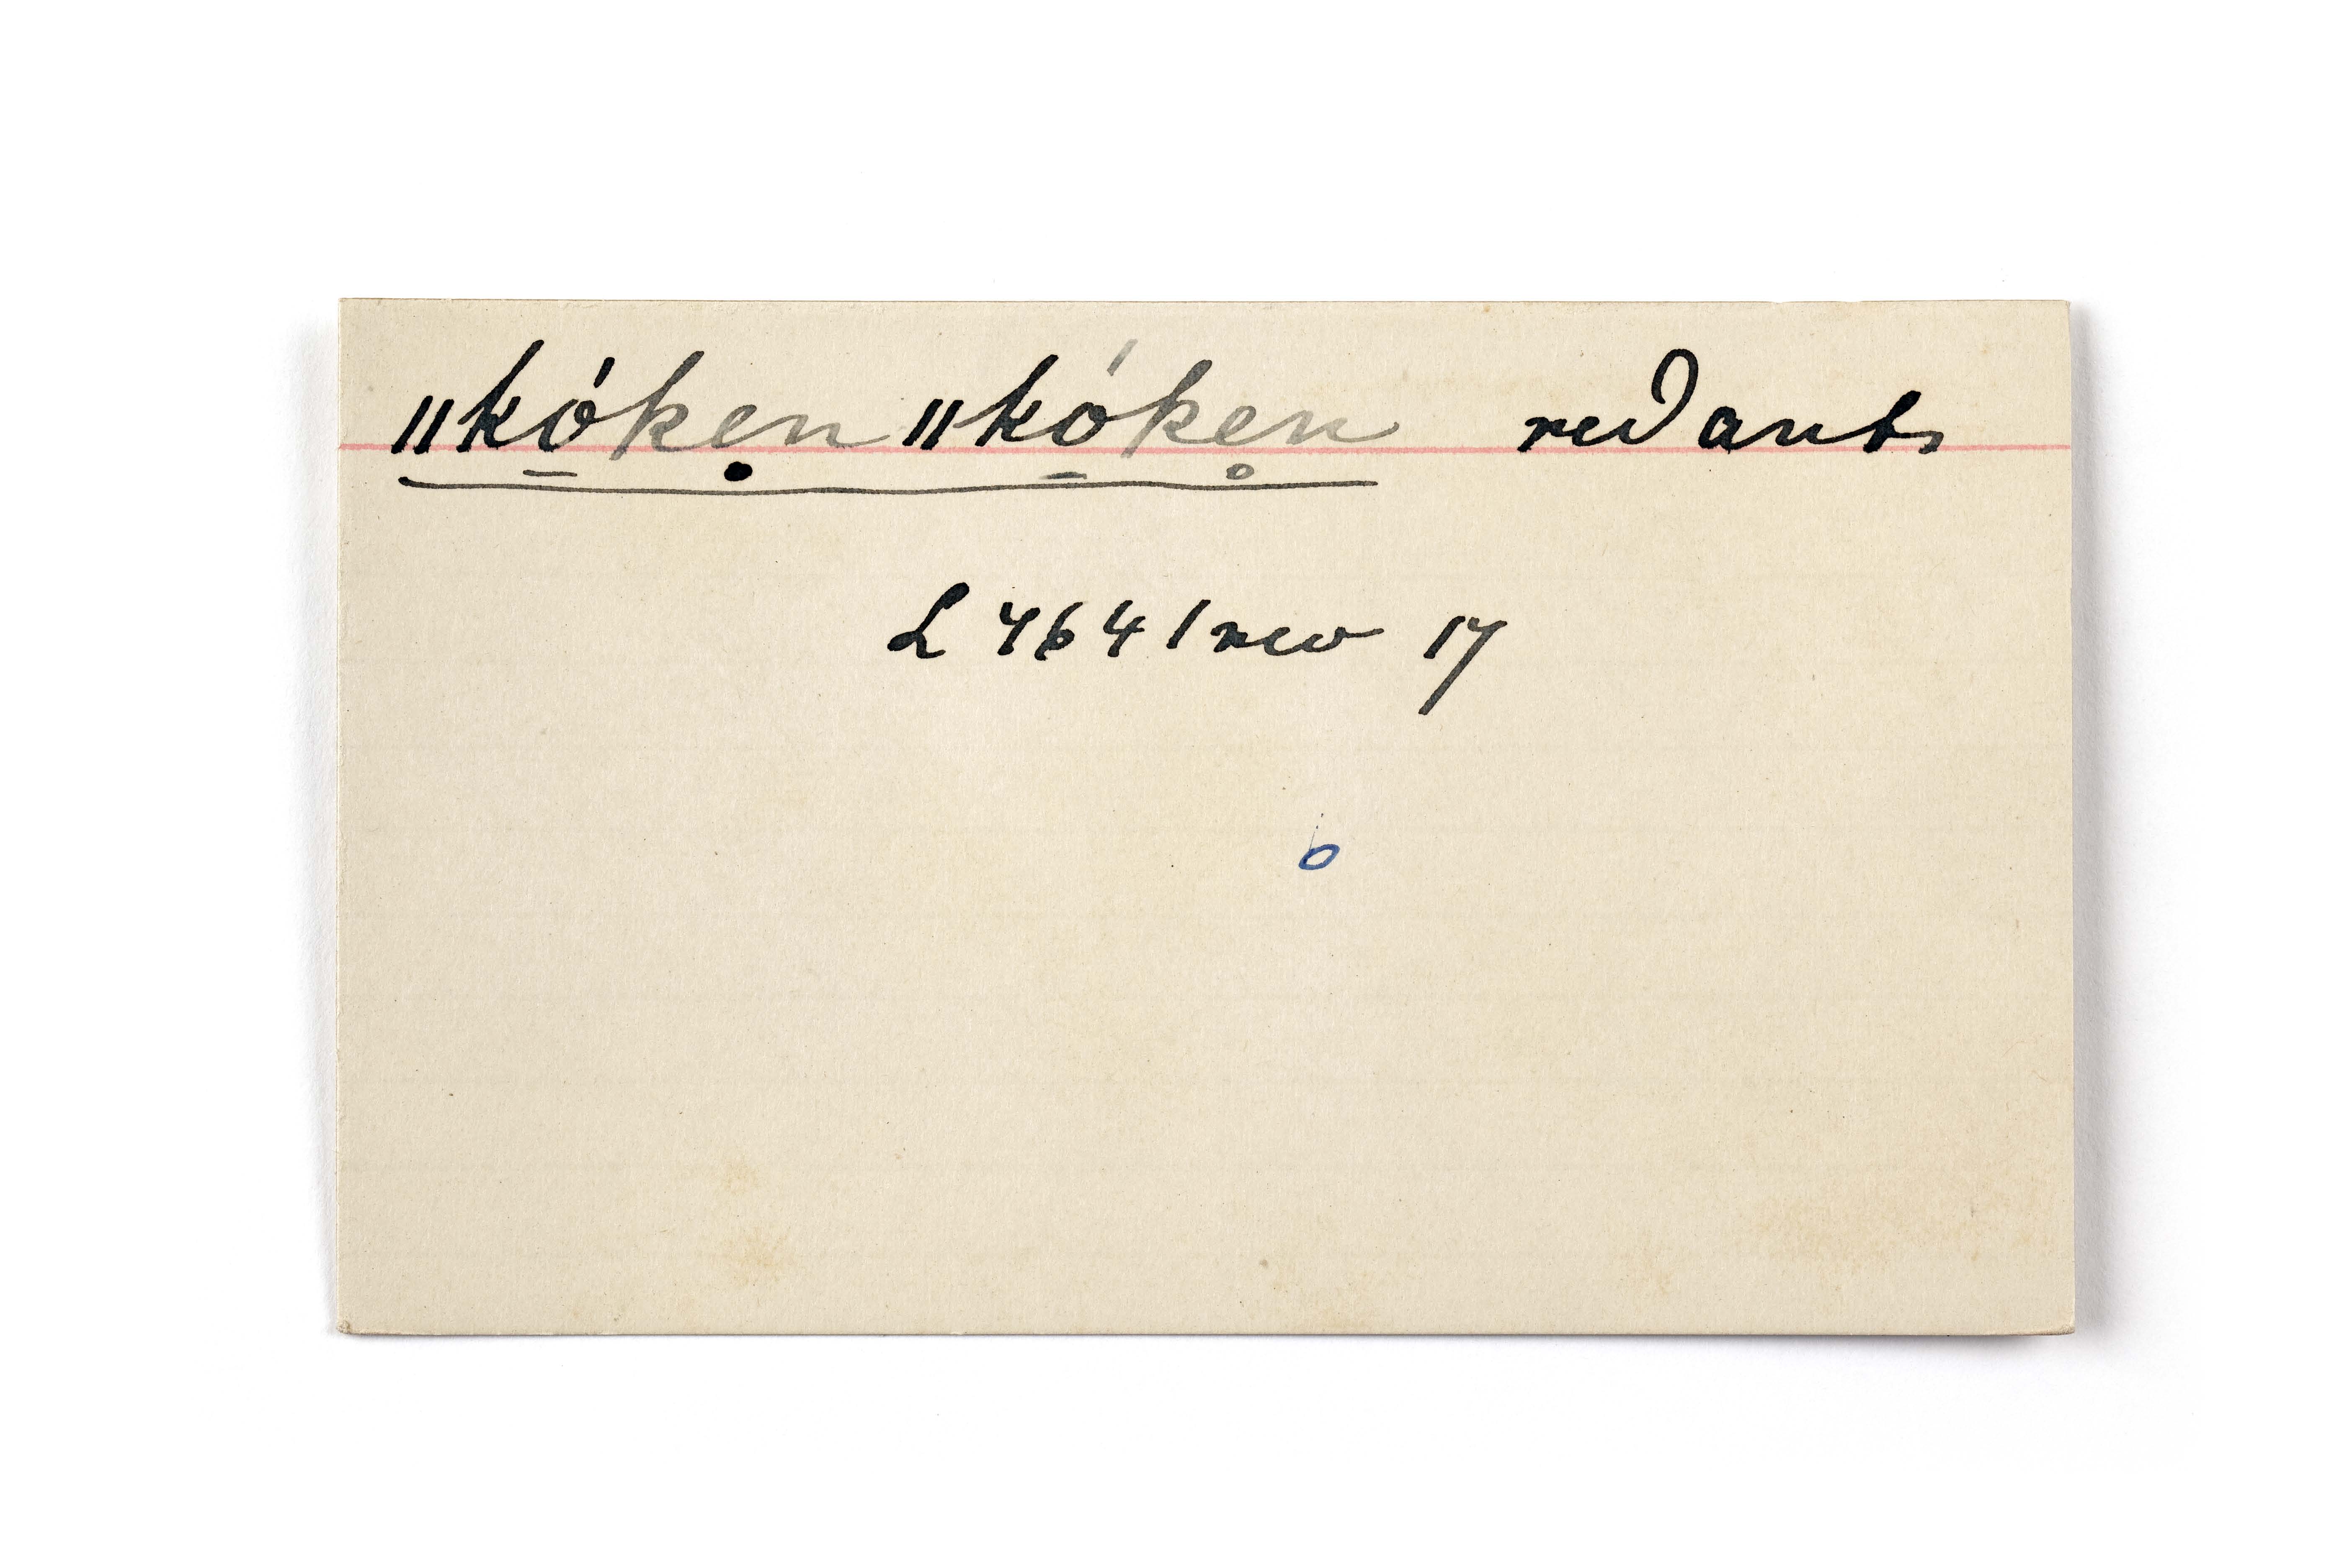 ǁkó̠ken̥ ǁkó̠ken̥ red ants
L 4641 rev 17
6